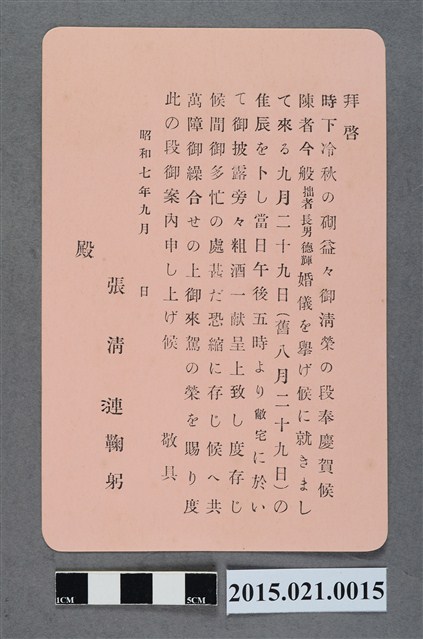 拜啓
時下冷秋の砌益々御淸榮の段奉慶賀候
陳者今般拙者長男德輝婚儀を擧げ候に就きまし
て來る九月二十九日(舊八月二十九日)の
隹辰を卜し當日午後五時より敝宅に於い
て御披露旁々粗酒一献呈上致し度存じ
候間御多忙の處甚だ恐縮に存じ候へ共
萬障御繰合せの上御來駕の榮を賜り度
此の段御案內申し上げ候 敬具
昭和七年九月 日
張淸漣鞠躬
殿
1CM
5CM
2015.021.0015